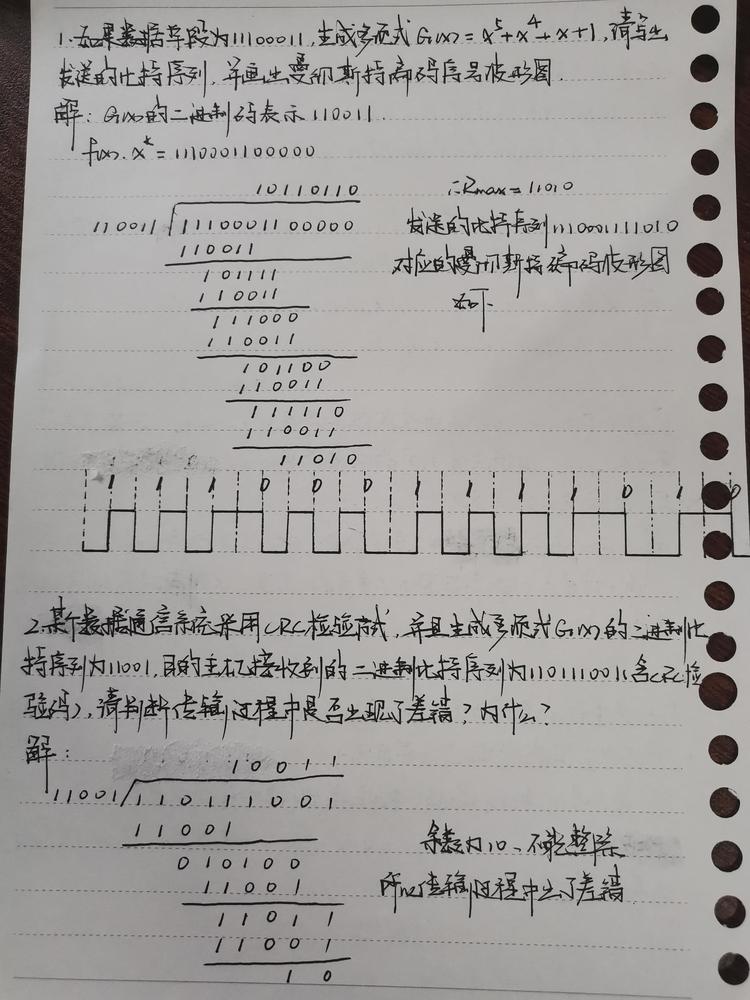 1.如果数据字段为11100011,生成多项式G(x)=x⁵+x⁴+x+1,请写出
发送的比特序列,并画出曼彻斯特编码信号波形图.
解:G(x)的二进制码表示110011.
f(x).xᵏ=1110001100000
10110110
∴Rmax=11010
110011 1110001100000
发送的比特序列1110001111010
110011
对应的曼彻斯特编码波形图
101111
如下
110011
111000
110011
101100
110011
111110
110011
11010
1 1 1 0 0 0 1 1 1 1 0 1 0
2.某个数据通信系统采用CRC检验方式,并且生成多项式G(x)的二进制比
特序列为11001,目的主机接收到的二进制比特序列为110111001(含CRC检
验码),请判断传输过程中是否出现了差错?为什么?
解:
10011
11001 110111001
11001
余数为10、不能整除
010100
所以传输过程中出了差错
11001
11011
11001
10